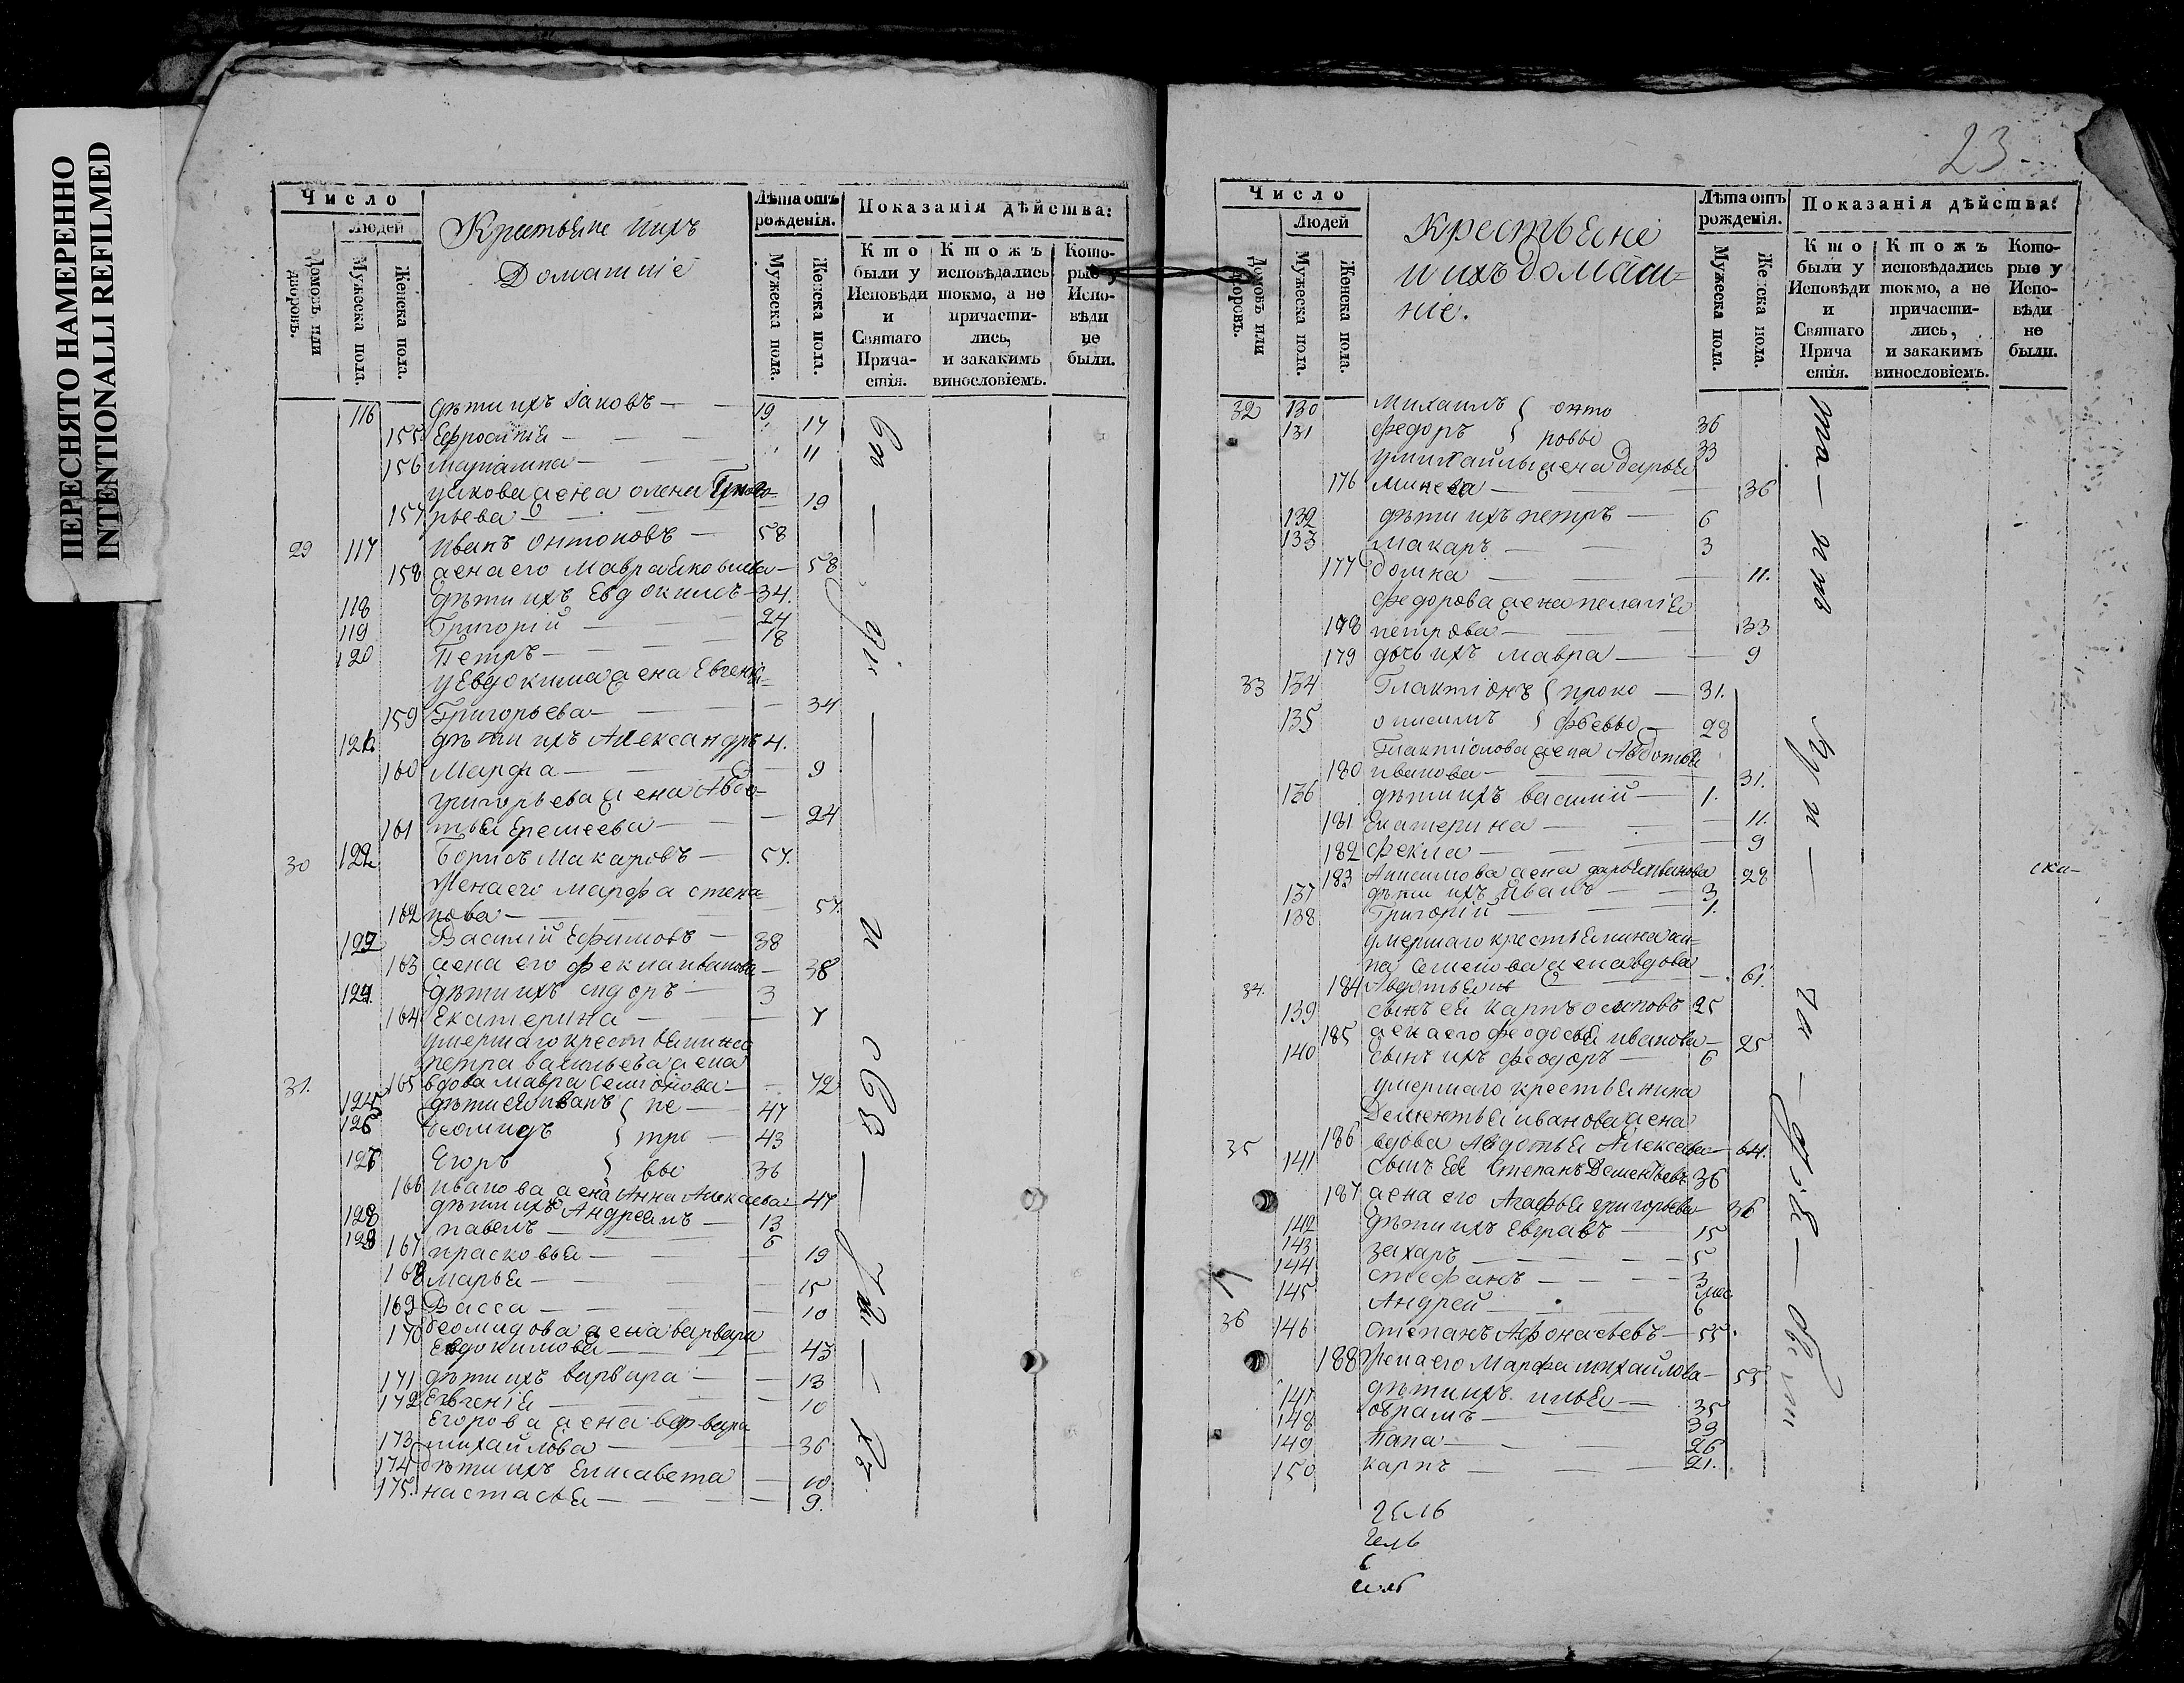 ПЕРЕСНЯТО НАМЕРЕННО
INTENTIONALLI REFILMED
Число
Людей
Домовъ или дворовъ.
Мужеска пола.
Женска пола.
Крестьяне ихъ
Домашніе
Лѣта отъ рожденія.
Мужеска пола.
Женска пола.
Показанія дѣйства:
Кто были у Исповѣди и Святаго Прича-стія.
Ктожъ исповѣдались токмо, а не причасти-лись, и закакимъ винословіемъ.
Кото-рые у Испо-вѣди не были.
116 дѣти ихъ Іаковъ — 19
155 Ефросинія — 17
156 Маріамна — 11
уякова жена олена Григо-
157 рьева — 19
29 117 Иванъ онтоновъ — 58
158 жена его Мавра Яковлева — 58
118 дѣти ихъ Евдокимъ — 34.
119 Григорій — 24
120 Петръ — 18
уЕвдокима жена Евгенія
159 Григорьева — 34
121 дѣти ихъ Александръ 4.
160 Марфа — 9
григорьева жена Авдо-
161 тья Еремеева — 24
30 122 Борисъ Макаровъ — 57.
Жена его марфа степа-
162 нова — 57.
123 Василій Ефимовъ — 38
163 жена его фекла иванова — 38
124 дѣти ихъ сидоръ — 3
164 Екатерина — 7
умершаго крестьянина
петра васильева жена
31. 165 вдова мавра Семіонова — 72
125 дѣти ея иванъ { пе — 47
126 Ѳеомидъ { тро — 43
127 Егоръ { вы 36
166 иванова жена Анна Алексеева 47
128 дѣти ихъ Андреянъ — 13
129 павелъ — 5
167 прасковья — 19
168 марья — 15
169 Васса — 10
Ѳеомидова жена варвара
170 Евдокимова — 43
171 дѣти ихъ варвара — 13
172 Евгенія — 10
Егорова жена варвара
173 михайлова — 36
174 дѣти ихъ Елисавета — 10
175. настасья — 9.
23
Число
Людей
Домовъ или дворовъ.
Мужеска пола.
Женска пола.
Крестьяне
и ихъ домаш-
ніе.
Лѣта отъ рожденія.
Мужеска пола.
Женска пола.
Показанія дѣйства:
Кто были у Исповѣди и Святаго Прича стія.
Ктожъ исповѣдались токмо, а не причасти-лись, и закакимъ винословіемъ.
Кото-рые у Испо-вѣди не были.
32 130 михаилъ { онто 36
131 федоръ { новы 33
умихайлы жена дарья
176 минева — 36
132 дѣти ихъ петръ — 6
133 макаръ — 3
177 домна — 11.
федорова жена пелагія
178 петрова — 33
179 дочь ихъ мавра — 9
33 134 Глактіонъ { проко — 31.
135 онисимъ { фьевы — 28
Глактіонова жена Авдотья
180 иванова — 31.
136 дѣти ихъ василий — 1.
181 Екатерина — 11.
182 Фекла — 9
183 Анисимова жена дарья иванова 28
137 дѣти ихъ иванъ — 3
138 Григорій — 1.
умершаго крестьянина оси-
па Семенова жена вдова
34. 184 Авдотья — 61.
139 сынъ ея карпъ осиповъ 25
185 жена его феодосья иванова — 25
140 сынъ ихъ феодоръ — 6
умершаго крестьянина
Дементья иванова жена
35 186 вдова Авдотья Алексеева — 64.
141 сынъ ея Степанъ Дементьевъ 36
187 жена его Агафья григорьева — 36
142 дѣти ихъ Евгравъ — 15
143 захаръ — 5
144 стефанъ — 3
145 Андрей — 6
36 146 Степанъ Афонасьевъ — 55.
188 Жена его Марфа михайлова — 55
147 дѣти ихъ илья — 35
148 Аврамъ — 33
149 — 26
150 карпъ — 21.
ска-